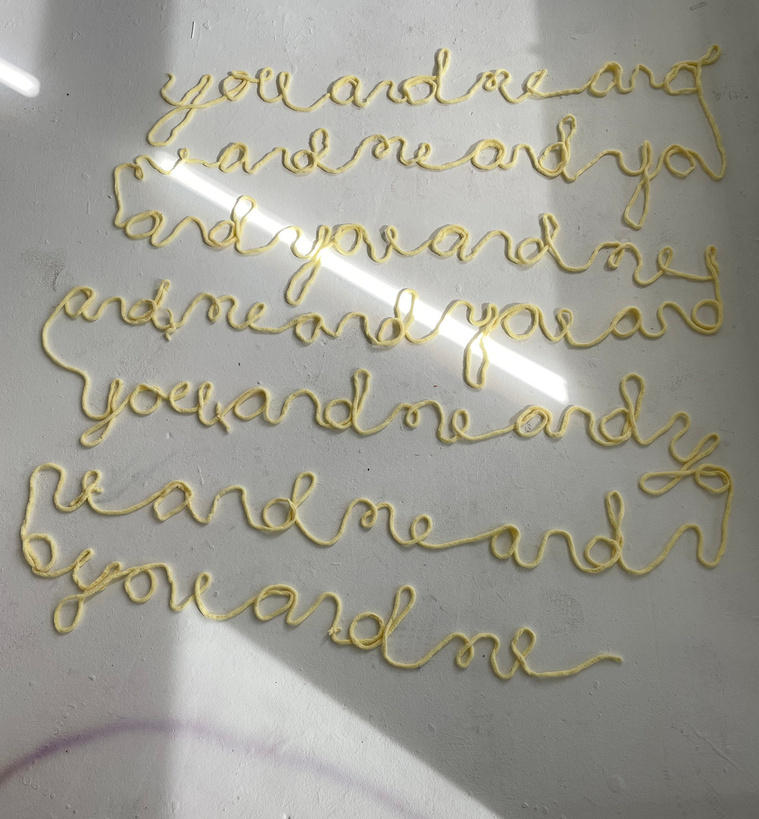 you and me and
u and me and yo
and you and me
and me and you and
you and me and yo
u and me and
you and me